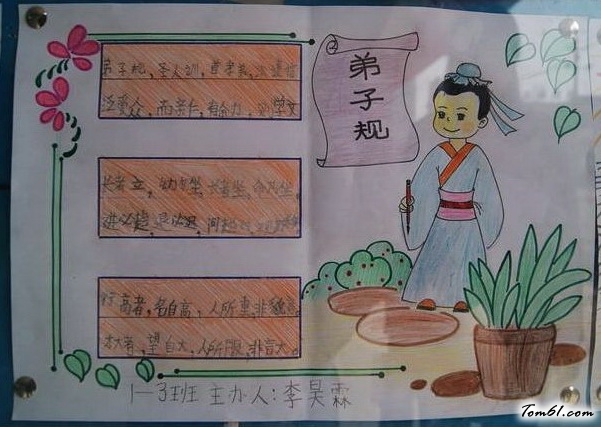 弟子规
弟子规,圣人训,首孝弟,次谨信
泛爱众,而亲仁,有余力,则学文
长者立,幼勿坐,长者坐,命乃坐
进必趋,退必迟,问起对
行高者,名自高,人所重,非貌高
才大者,望自大,人所服,非言大。
1—3班 主办人:李昊霖
Tom61.com